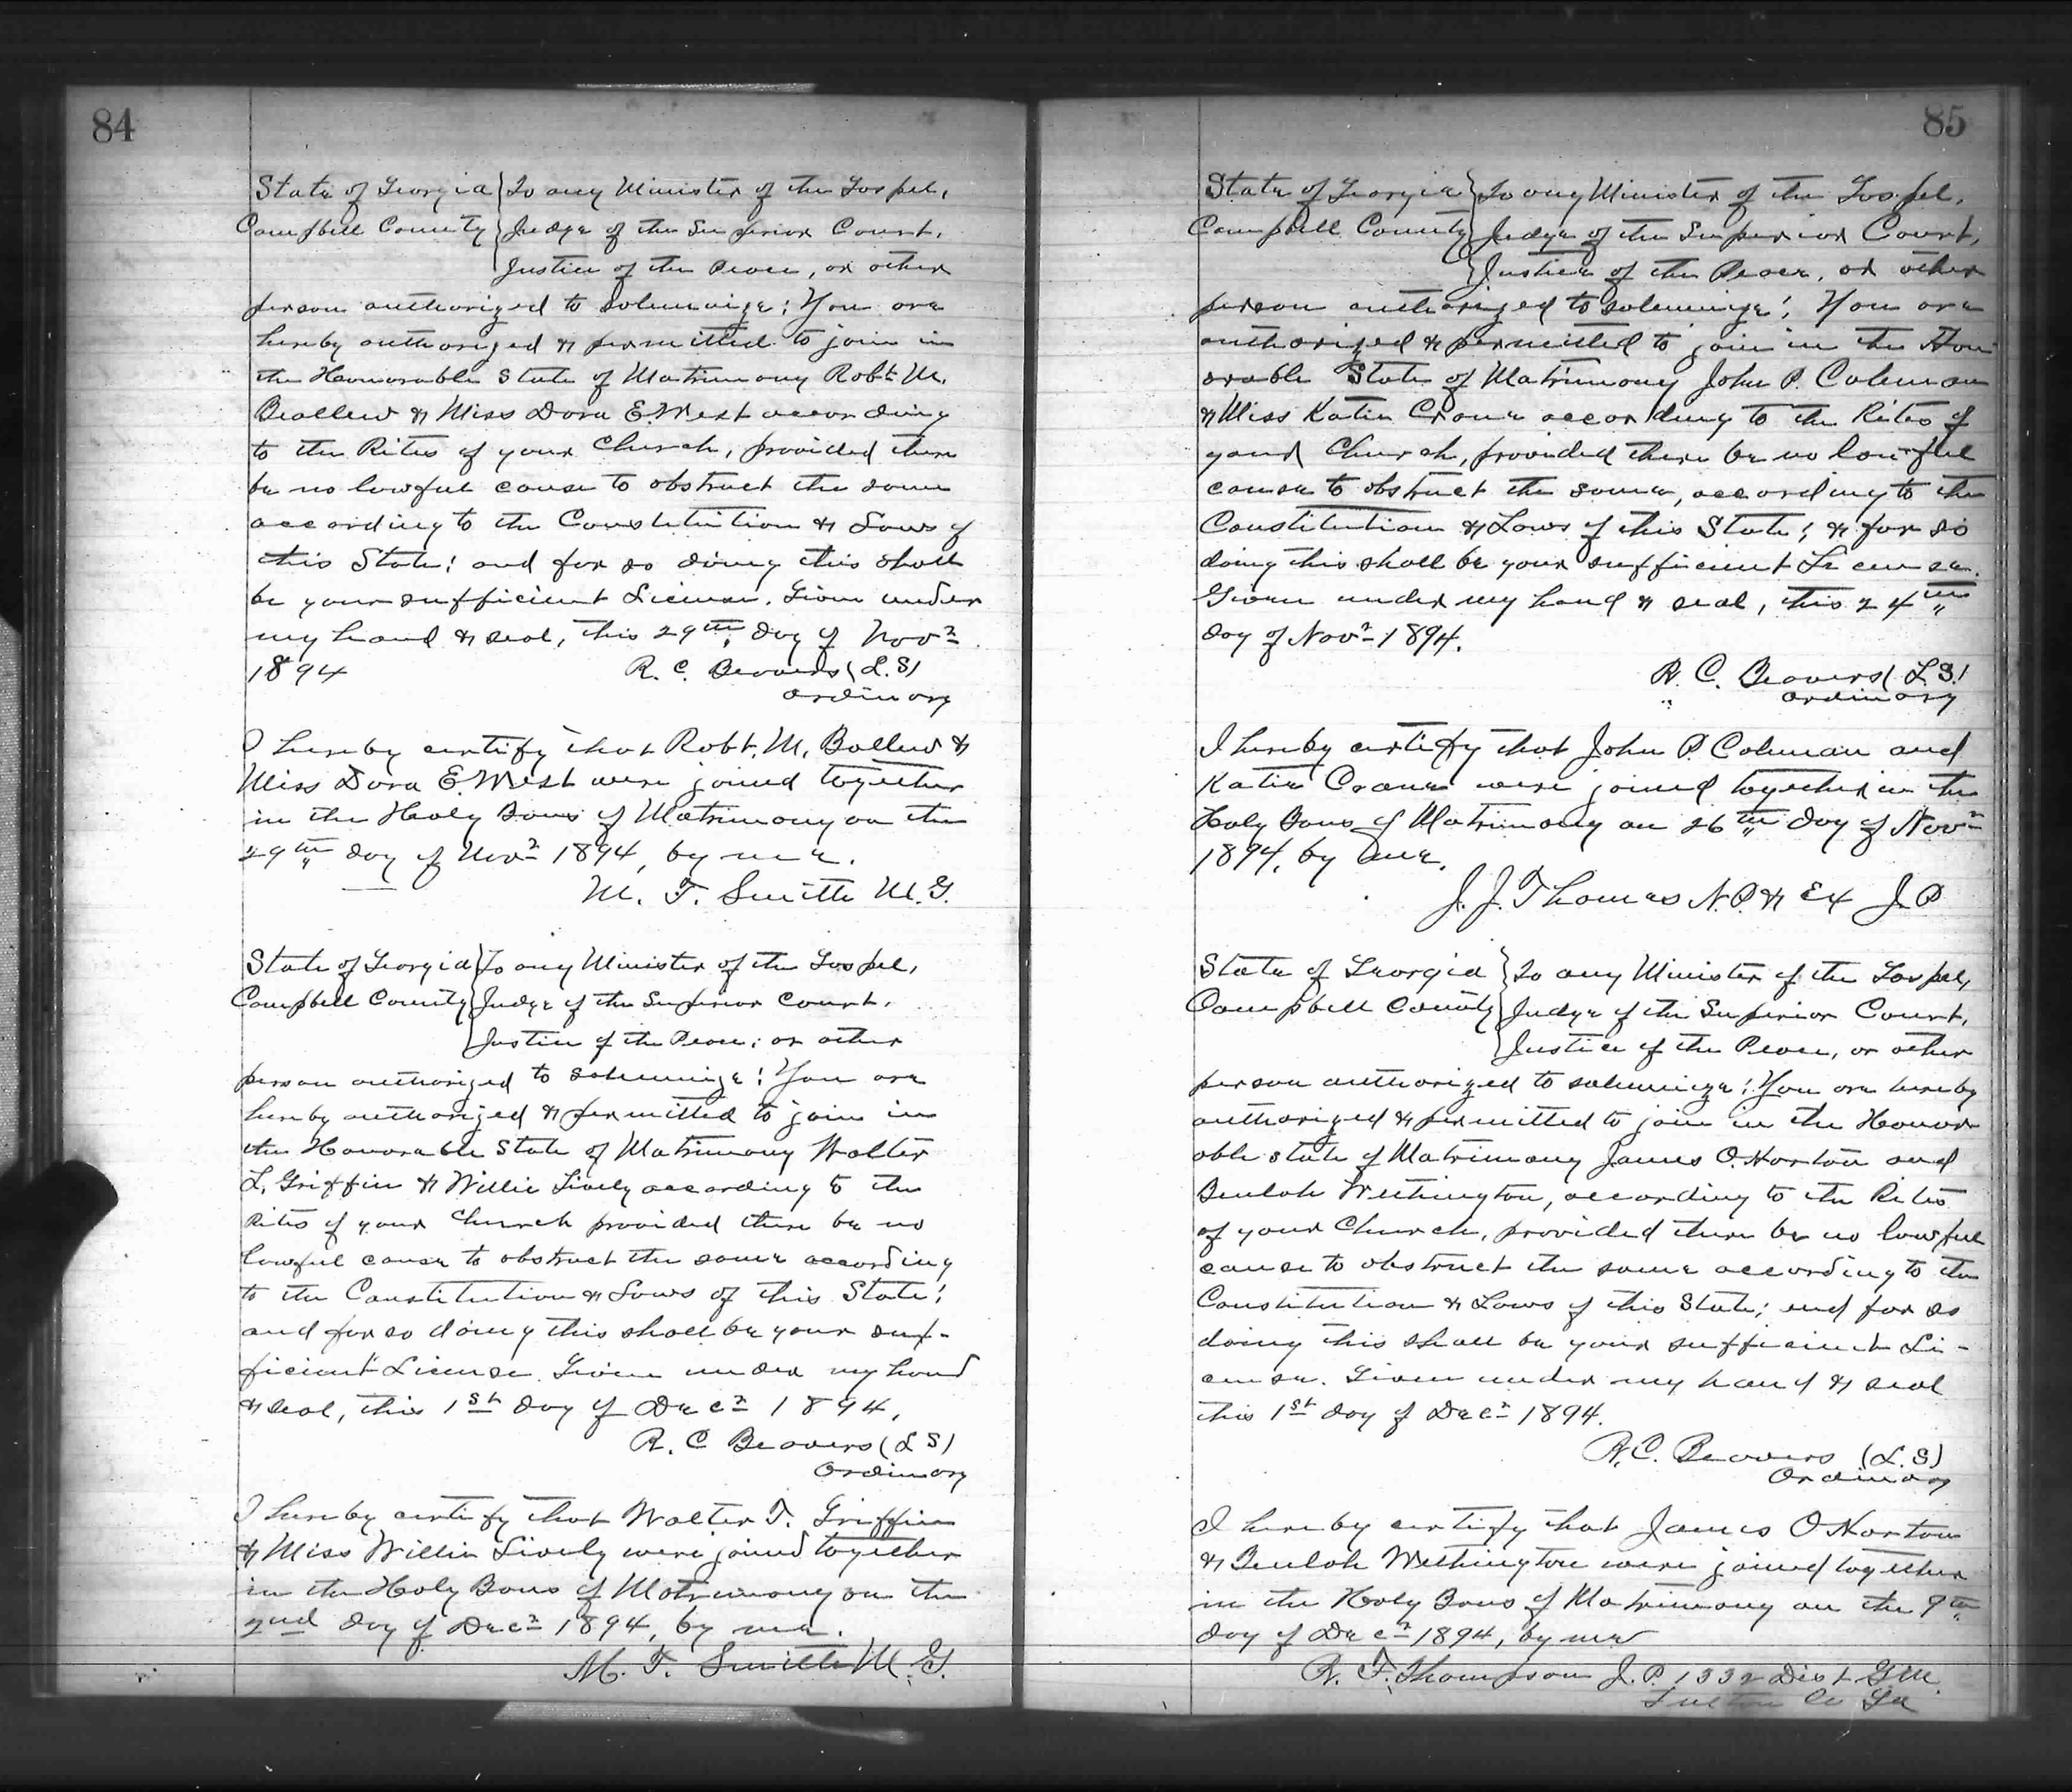 84
State of Georgia } To any Minister of the Gospel,
Campbell County } Judge of the Superior Court,
Justice of the Peace, or other
person authorized to solemnize: You are
hereby authorized & permitted to join in
the Honorable State of Matrimony Robt. M.
Beallew & Miss Dora E. West according
to the Rites of your Church, provided there
be no lawful cause to obstruct the same
according to the Constitution & Laws of
this State: and for so doing this shall
be your sufficient License. Given under
my hand & seal, this 29th day of Novr
1894 R. C. Beavers (L.S)
Ordinary
I hereby certify that Robt. M. Ballew &
Miss Dora E. West were joined together
in the Holy Bans of Matrimony on the
29th day of Novr 1894, by me.
M. T. Smith M.G.
State of Georgia } To any Minister of the Gospel,
Campbell County } Judge of the Superior Court,
Justice of the Peace, or other
person authorized to solemnize: You are
hereby authorized & permitted to join in
the Honorable State of Matrimony Walter
L. Griffin & Willie Lively according to the
Rites of your Church provided there be no
lawful cause to obstruct the same according
to the Constitution & Laws of this State;
and for so doing this shall be your suf-
ficient License. Given under my hand
& seal, this 1st day of Decr 1894,
R. C Beavers (L S)
Ordinary
I hereby certify that Walter T. Griffin
& Miss Willie Lively were joined together
in the Holy Bans of Matrimony on the
2nd day of Decr 1894, by me.
M. T. Smith M. G.
85
State of Georgia } To any Minister of the Gospel,
Campbell County } Judge of the Superior Court,
} Justice of the Peace, or other
person authorized to solemnize: You are
authorized & permitted to join in the Hon
orable State of Matrimony John P. Coleman
& Miss Katie Crane according to the Rites of
your Church, provided there be no lawful
cause to obstruct the same, according to the
Constitution & Laws of this State; & for so
doing this shall be your sufficient License.
Given under my hand & seal, this 24th
day of Novr 1894.
R. C. Beavers (L.S.)
Ordinary
I hereby certify that John P. Coleman and
Katie Crane were joined together in the
Holy Bans of Matrimony on 26th day of Novr
1894, by me.
J. J. Thomas N.P. & Ex J.P
State of Georgia } To any Minister of the Gospel,
Campbell County } Judge of the Superior Court,
} Justice of the Peace, or other
person authorized to solemnize: You are hereby
authorized & permitted to join in the Honor
able state of Matrimony James O. Norton and
Beulah Wethington, according to the Rites
of your Church, provided there be no lawful
cause to obstruct the same according to the
Constitution & Laws of this State; and for so
doing this shall be your sufficient Li-
cense. Given under my hand & seal
this 1st day of Decr 1894.
R. C. Beavers (L.S)
Ordinary
I hereby certify that James O Norton
& Beulah Wethington were joined together
in the Holy Bans of Matrimony on the 9th
day of Decr 1894, by me
R. F. Thompson J. P. 1332 Dist G.M.
Fulton Co Ga